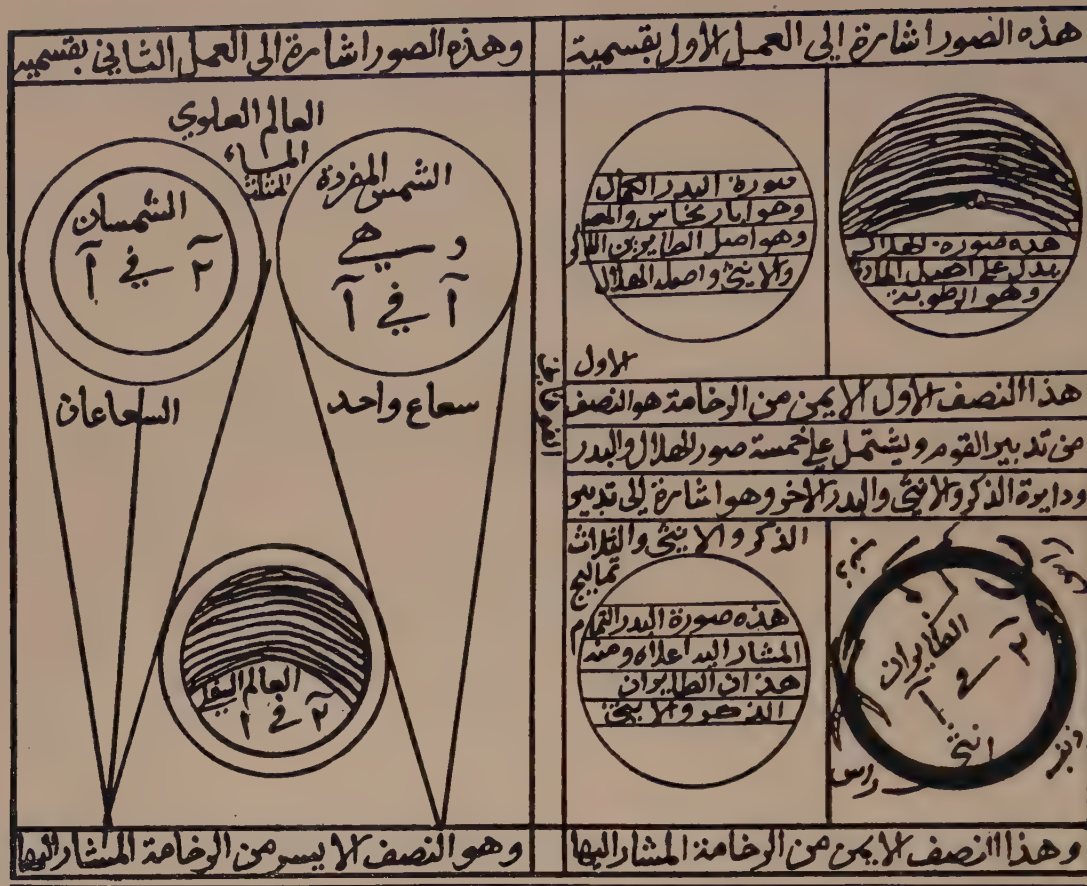 هذه الصور اشارة الى العمل الاول بقسمية
هذه صورة الهلال
يدل على اصل المادة
وهو الرطوبة
صورة البدر الكمال
وهو ابار نحاس
وهو اصل الطايرين الذكر
والانثى واصله الهلال
الاول
هذا النصف الاول الايمن من الرخامة هو النصف
من تدبير القوم ويشتمل على خمسة صور الهلال والبدر
ودايرة الذكر والانثى والبدر الاخر وهو اشارة الى تدبير
الذكر والانثى والثلاث
الطايران
٢ في ١
انثى
راس
ذنب
هذه صورة البدر التمام
المشار اليه اعلاه ومنه
هذان الطايران
الذكر والانثى
وهذا النصف الايمن من الرخامة المشار اليها
وهذه الصور اشارة الى العمل الثاني بقسميه
العالم العلوي
الماء
المثلث
الشمس المفردة
وهي
آ في آ
الشمسان
٢ في آ
سعاع واحد
السعاعان
العالم السفلي
٢ في ١
وهو النصف الايسر من الرخامة المشار اليها